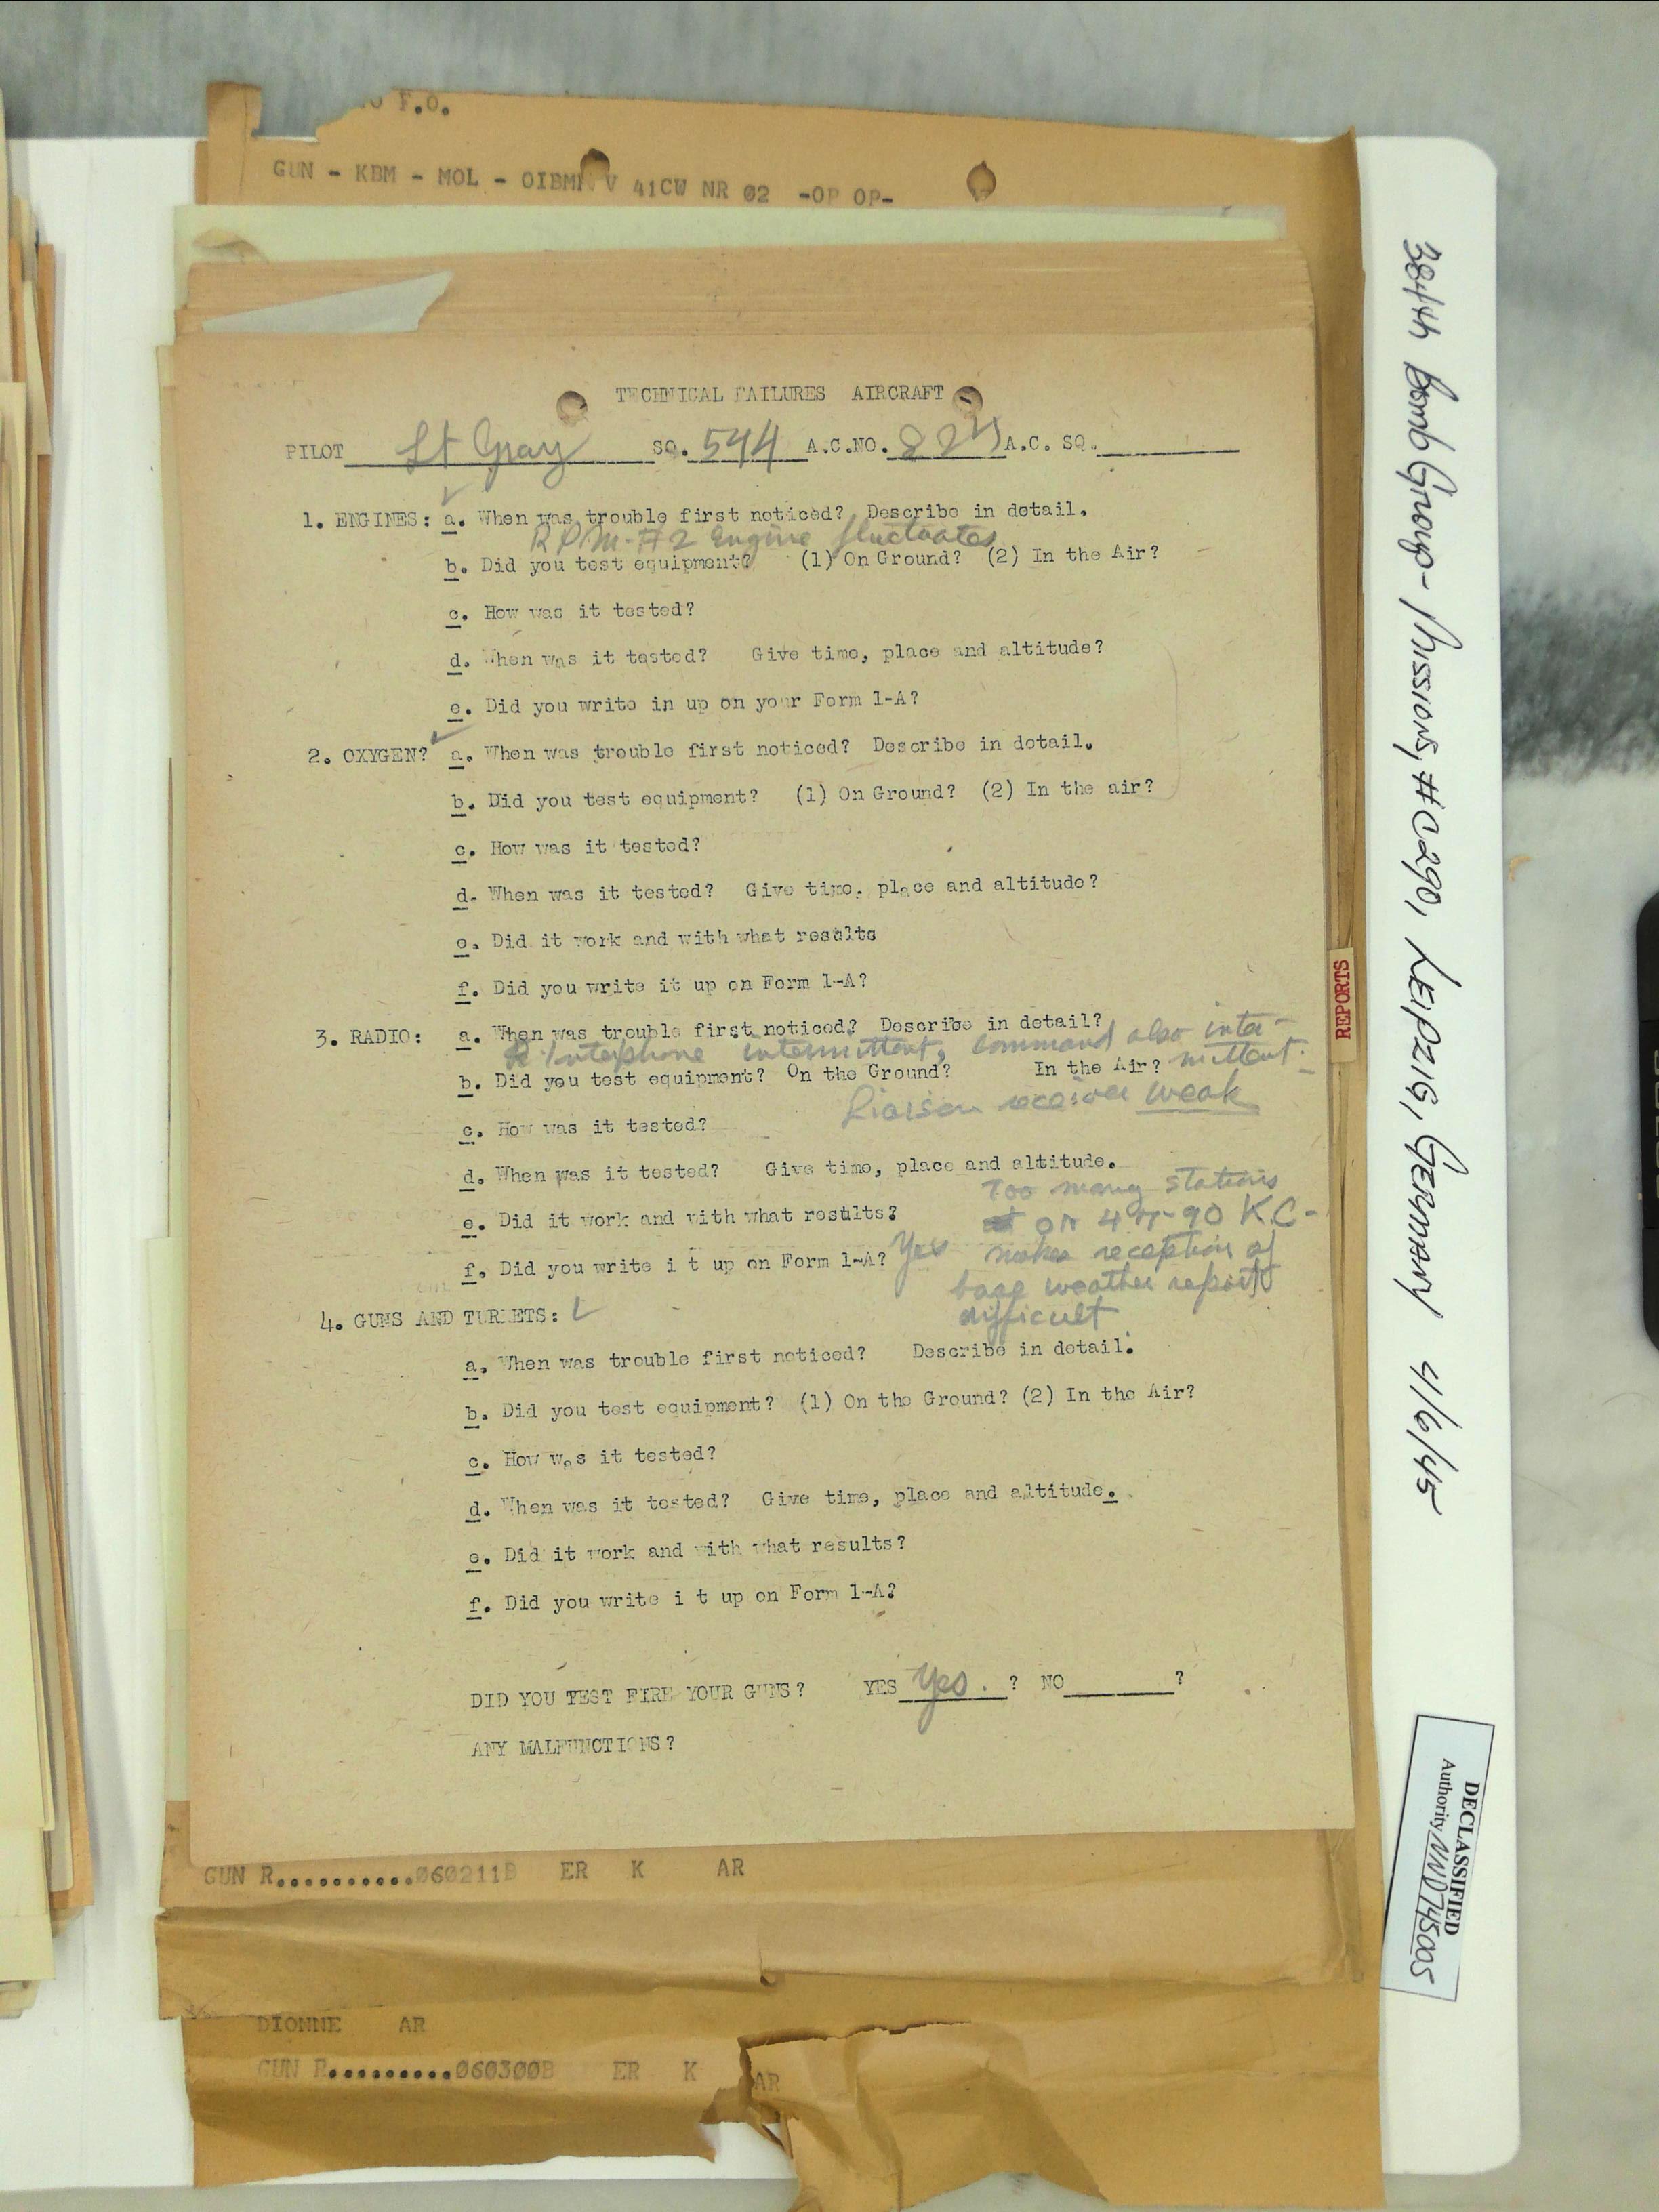 F.O.
GUN - KBM - MOL - OIBMN V 41CW NR 02 -OP OP-
TECHNICAL FAILURES AIRCRAFT
PILOT Lt Gray SQ. 544 A.C.NO. 824 A.C. SQ.
1. ENGINES: a. When was trouble first noticed? Describe in detail.
RPM-#2 Engine fluctuates
b. Did you test equipment? (1) On Ground? (2) In the Air?
c. How was it tested?
d. When was it tested? Give time, place and altitude?
e. Did you write in up on your Form 1-A?
2. OXYGEN? a. When was trouble first noticed? Describe in detail.
b. Did you test equipment? (1) On Ground? (2) In the air?
c. How was it tested?
d. When was it tested? Give time. place and altitude?
e. Did it work and with what results
f. Did you write it up on Form 1-A?
3. RADIO: a. When was trouble first noticed? Describe in detail?
Interphone intermittent, command also inter-
mittent.
b. Did you test equipment? On the Ground? In the Air?
Liaison receiver weak
c. How was it tested?
d. When was it tested? Give time, place and altitude.
Too many stations
e. Did it work and with what results?
on 4 90 KC-
f. Did you write i t up on Form 1-A? Yes
makes reception of
base weather reports
difficult
4. GUNS AND TURRETS:
a. When was trouble first noticed? Describe in detail.
b. Did you test equipment? (1) On the Ground? (2) In the Air?
c. How was it tested?
d. When was it tested? Give time, place and altitude.
e. Did it work and with what results?
f. Did you write i t up on Form 1-A?
DID YOU TEST FIRE YOUR GUNS? YES Yes. ? NO ?
ANY MALFUNCTIONS?
GUN R..........060211B ER K AR
DIONNE AR
GUN R.........060300B ER K AR
REPORTS
384th Bomb Group - Missions, #C290, LEIPZIG, GERMANY 4/6/45
DECLASSIFIED
Authority NND745005